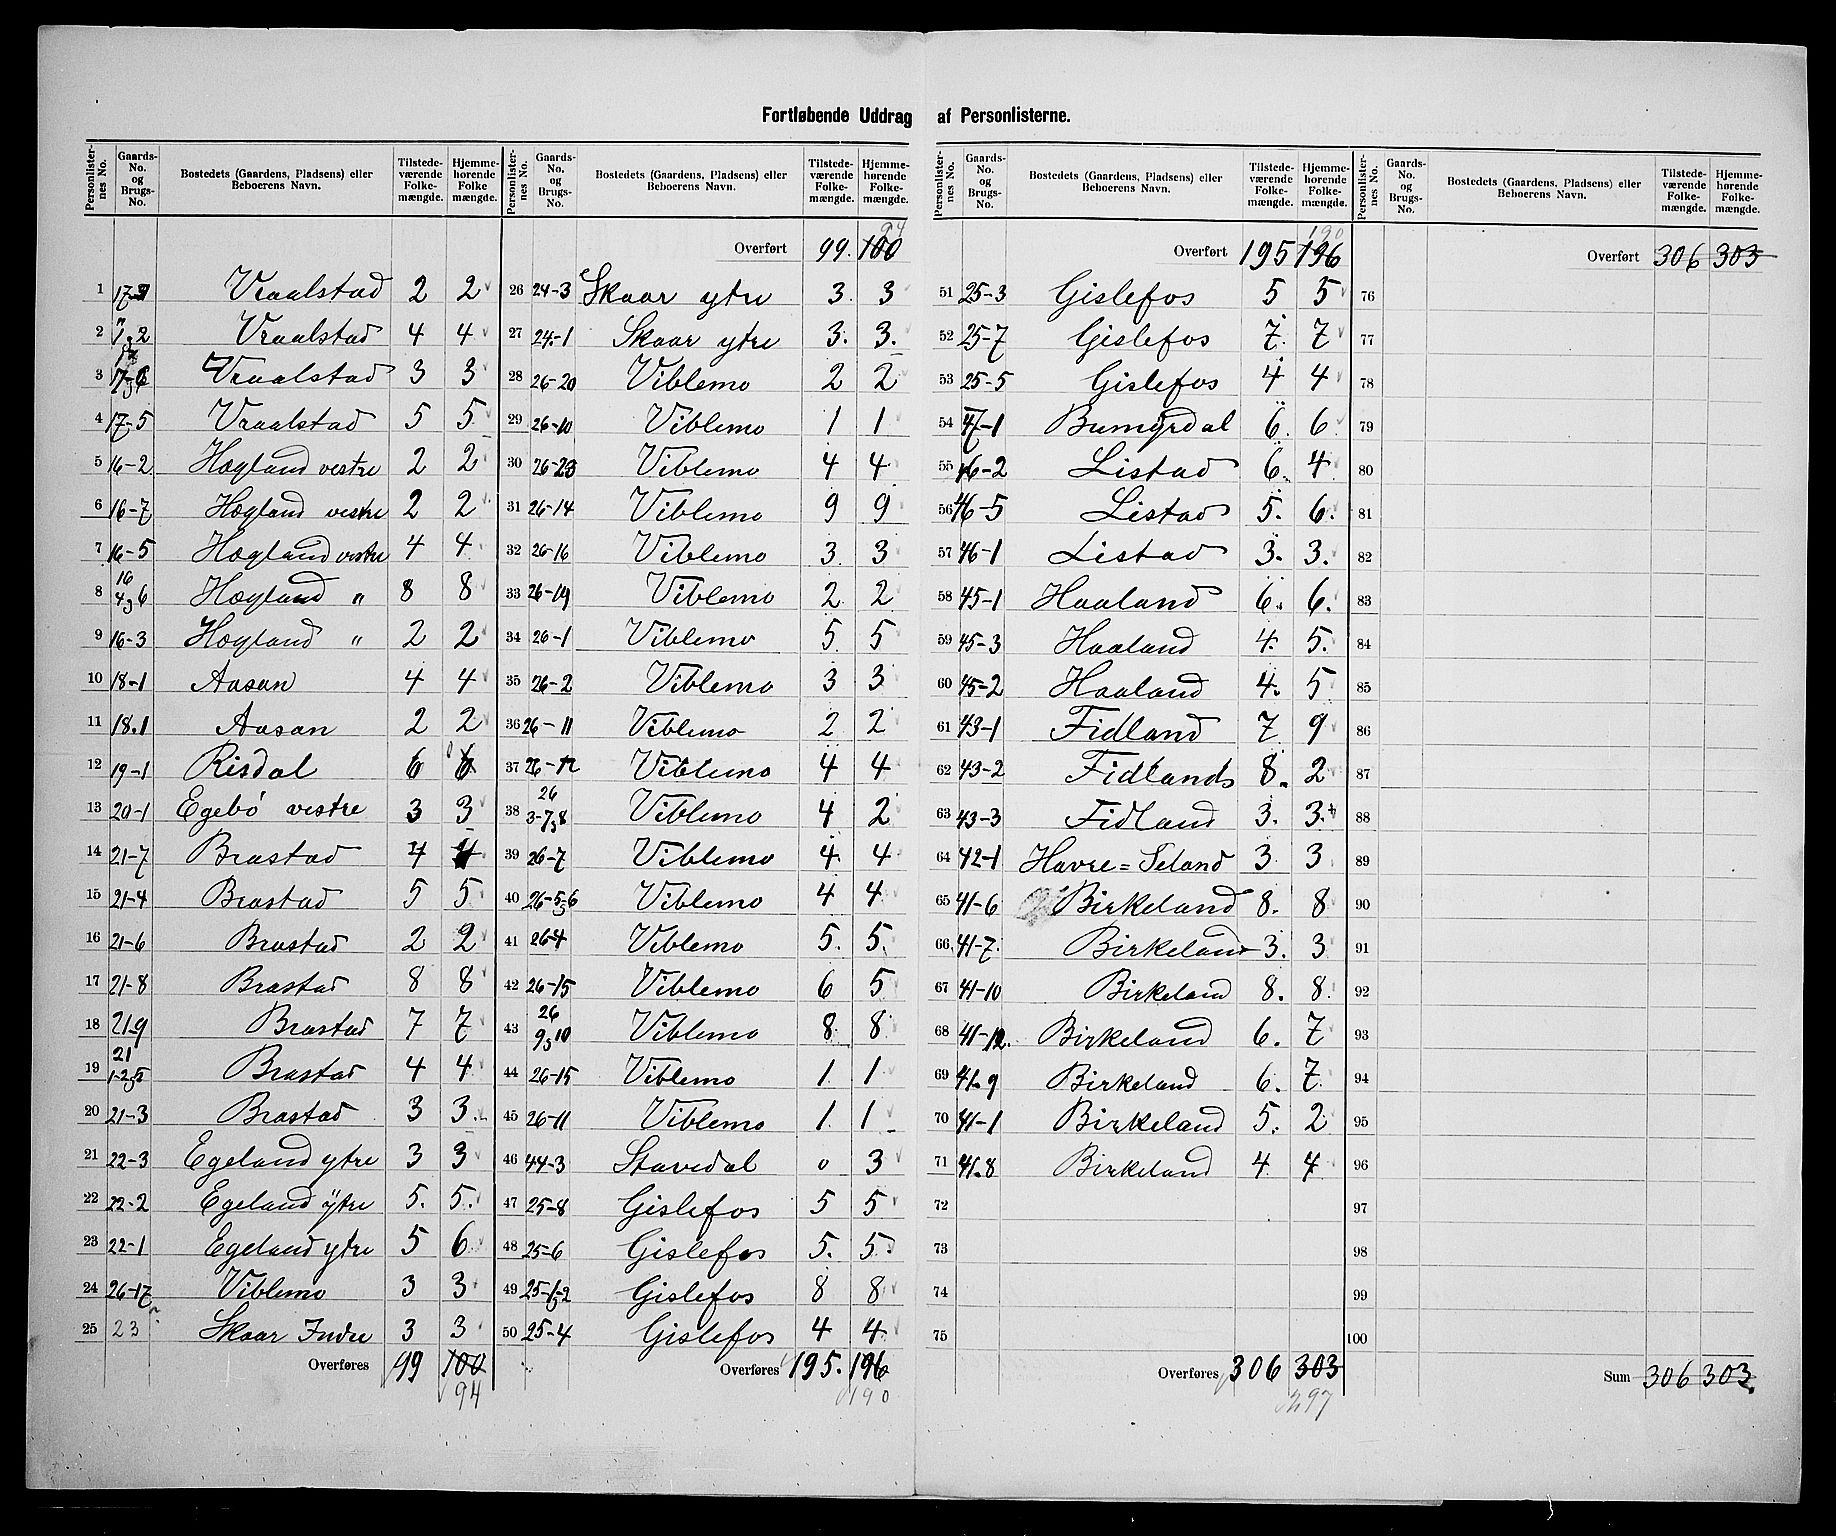 Fortløbende Uddrag af Personlisterne.
Personlister-nes No. | Gaards-No. og Brugs-No. | Bostedets (Gaardens, Pladsens) eller Beboerens Navn. | Tilstede-værende Folke-mængde. | Hjemme-hørende Folke mængde.
1 Vraalstad 2 2
2 Vraalstad 4 4
3 Vraalstad 3 3
4 17-5 Vraalstad 5 5
5 16-2 Høgland vestre 2 2
6 16-7 Høgland vestre 2 2
7 16-5 Høgland vestre 4 4
8 16 4,6 Høgland " 8 8
9 16-3 Høgland " 2 2
10 18-1 Aasan 4 4
11 18.1 Aasan 2 2
12 19-1 Risdal 6 6
13 20-1 Egebö vestre 3 3
14 21-7 Brastad 4 4
15 21-4 Brastad 5 5
16 21-6 Brastad 2 2
17 21-8 Brastad 8 8
18 21-9 Brastad 7 7
19 21 1-2,5 Brastad 4 4
20 21-3 Brastad 3 3
21 22-3 Egeland ytre 3 3
22 22-2 Egeland ytre 5. 5.
23 22-1 Egeland ytre 5 6
24 26-17 Viblemo 3 3
25 23 Skaar Indre 3 3
Overføres 99 100
94
Personlister-nes No. | Gaards-No. og Brugs-No. | Bostedets (Gaardens, Pladsens) eller Beboerens Navn. | Tilstede-værende Folke-mængde. | Hjemme-hørende Folke-mængde.
94
Overført 99. 100
26 24-3 Skaar ytre 3. 3
27 24-1 Skaar ytre 3. 3.
28 26-20 Viblemo 2 2
29 26-10 Viblemo 1 1
30 26-23 Viblemo 4 4
31 26-14 Viblemo 9 9
32 26-16 Viblemo 3 3
33 26-19 Viblemo 2 2
34 26-1 Viblemo 5 5
35 26-2 Viblemo 3 3
36 26-11 Viblemo 2 2
37 26-12 Viblemo 4 4
38 26 3-7,8 Viblemo 4 2
39 26-7 Viblemo 4. 4
40 26-5,6 Viblemo 4 4
41 26-4 Viblemo 5. 5.
42 26-15 Viblemo 6 5
43 26 9,10 Viblemo 8 8
44 26-15 Viblemo 1 1
45 26-11 Viblemo 1. 1
46 44-3 Stavedal 0 3
47 25-8 Gislefos 5 5
48 25-6 Gislefos 5. 5.
49 25-1,2 Gislefos 8 8
50 25-4 Gislefos 4 4
Overføres 195. 196
190
Personlister-nes No. | Gaards-No. og Brugs-No. | Bostedets (Gaardens, Pladsens) eller Beboerens Navn. | Tilstede-værende Folke-mængde. | Hjemme-hørende Folke-mængde.
190
Overført 195 196
51 25-3 Gislefos 5 5
52 25-7 Gislefos 7. 7
53 25-5 Gislefos 4 4
54 47-1 Bumyrdal 6. 6.
55 46-2 Listad 6. 4
56 46-5 Listad 5. 6.
57 46-1 Listad 3. 3.
58 45-1 Haaland 6. 6.
59 45-3 Haaland 4. 5.
60 45-2 Haaland 4. 5
61 43-1 Fidland 7 9
62 43-2 Fidland 8. 2
63 43-3 Fidland 3. 3.
64 42-1 Havre=Seland 3 3
65 41-6 Birkeland 8. 8
66 41-7. Birkeland 3. 3
67 41-10 Birkeland 8. 8.
68 41-12. Birkeland 6. 7
69 41-9 Birkeland 6. 7.
70 41-1 Birkeland 5. 2
71 41-8 Birkeland 4 4
72
73
74
75
Overføres 306 303
297
Personlister-nes No. | Gaards-No. og Brugs-No. | Bostedets (Gaardens, Pladsens) eller Beboerens Navn. | Tilstede-værende Folke-mængde. | Hjemme-hørende Folke-mængde.
Overført 306 303
76
77
78
79
80
81
82
83
84
85
86
87
88
89
90
91
92
93
94
95
96
97
98
99
100
Sum 306 303.